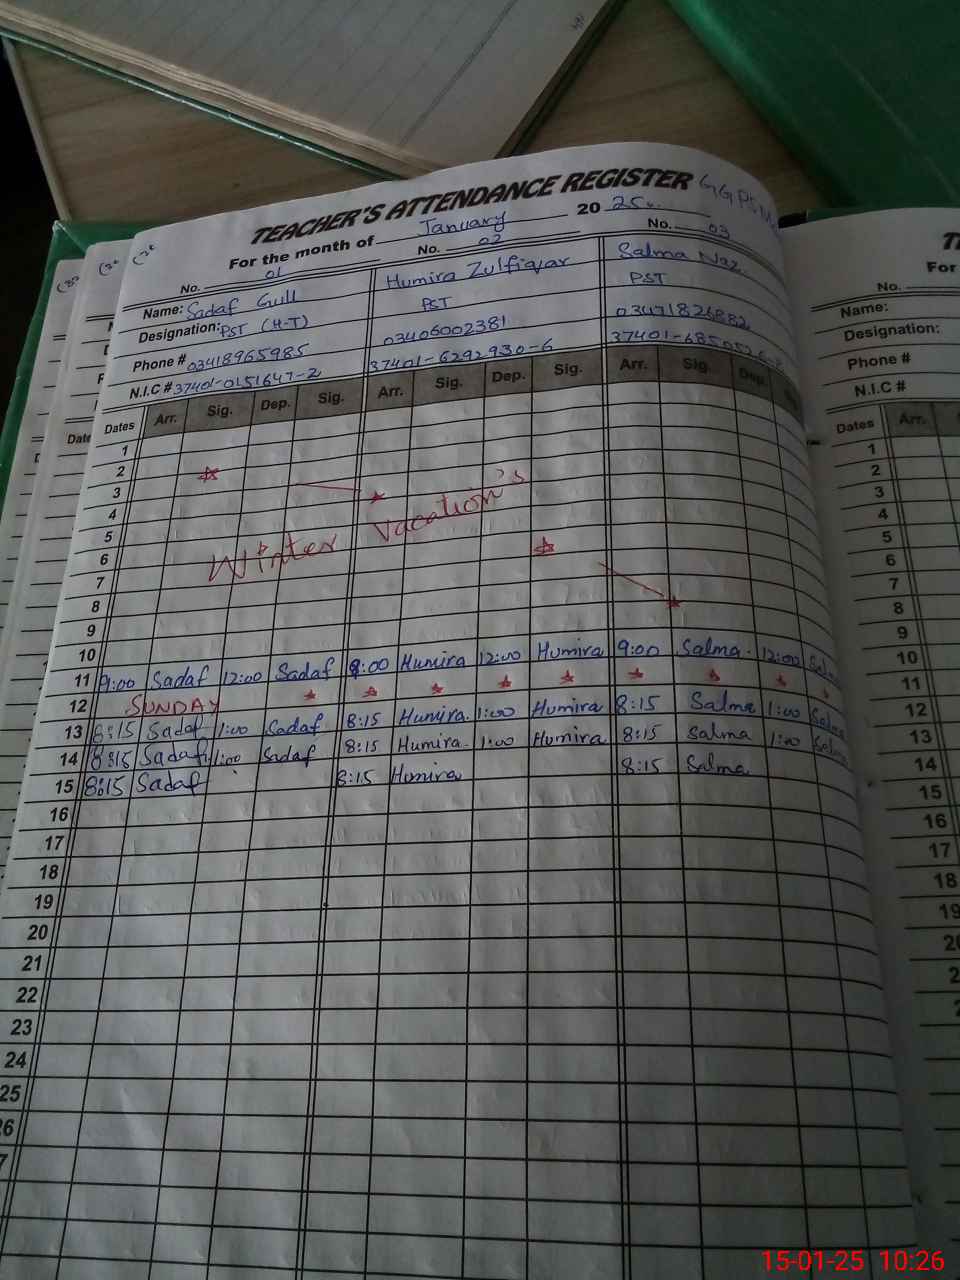 TEACHER'S ATTENDANCE REGISTER
For the month of January 20 25
No. 01 No. 02 No. 03
Name: Sadaf Gull Humira Zulfiqar Salma Naz
Designation: PST (H-T) PST PST
Phone # 03418965985 03406002381 03471826882
N.I.C # 37401-0151647-2 37401-6292930-6
Dates Arr. Sig. Dep. Sig. Arr. Sig. Dep. Sig. Arr. Sig. Dep.
1
2
3
4
5
6
Winter Vacation's
7
8
9
10
11 9:00 Sadaf 12:00 Sadaf 9:00 Humira 12:00 Humira 9:00 Salma 12:00 Salma
12 SUNDAY
13 8:15 Sadaf 1:00 Sadaf 8:15 Humira 1:00 Humira 8:15 Salma 1:00 Salma
14 8:15 Sadaf 1:00 Sadaf 8:15 Humira 1:00 Humira 8:15 Salma 1:00 Salma
15 8:15 Sadaf 8:15 Humira 8:15 Salma
16
17
18
19
20
21
22
23
24
25
For
No.
Name:
Designation:
Phone #
N.I.C #
Dates Arr.
1
2
3
4
5
6
7
8
9
10
11
12
13
14
15
16
17
18
19
15-01-25 10:26